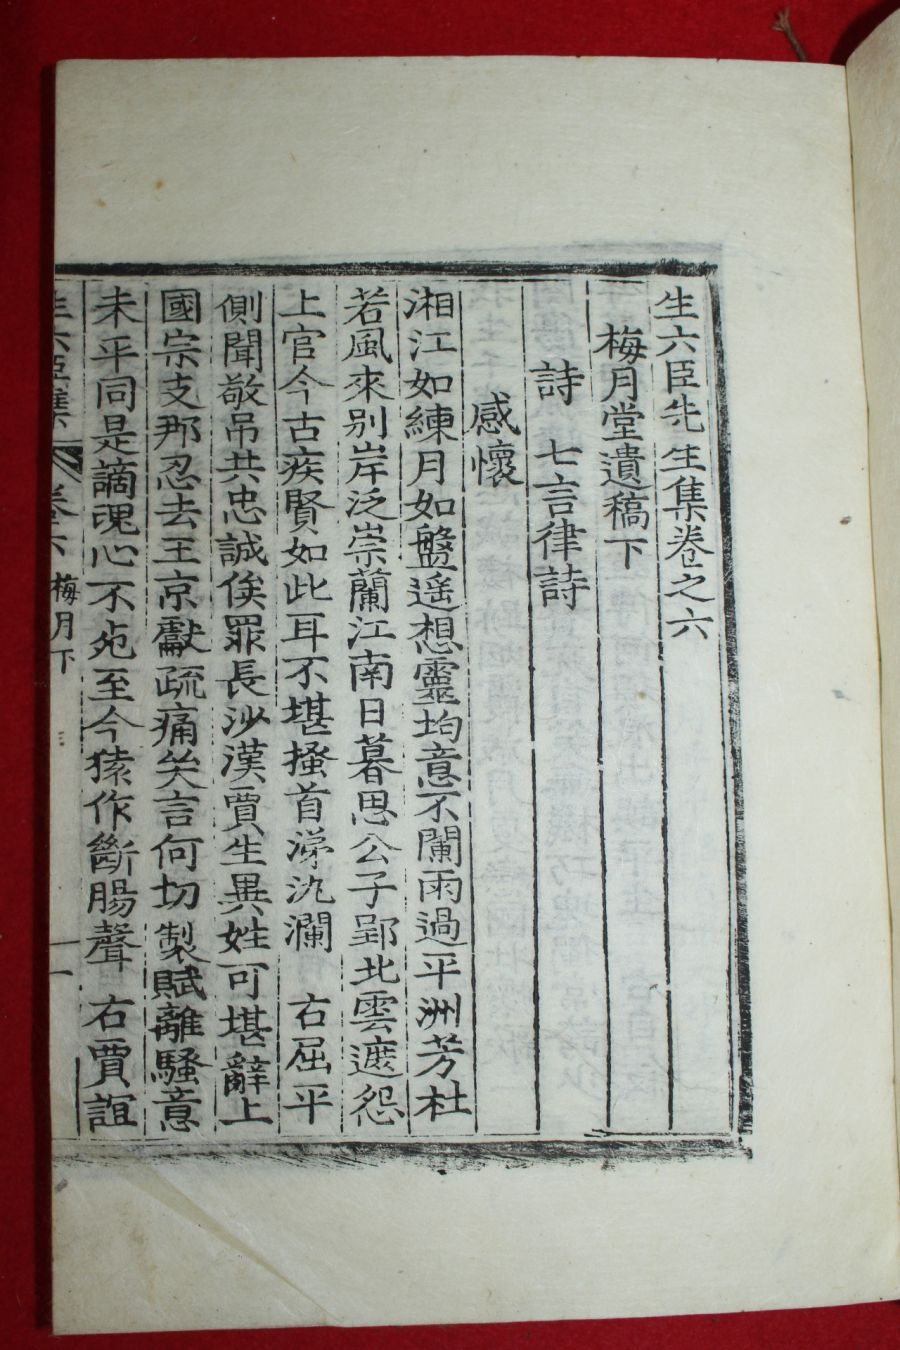 生六臣先生集卷之六
梅月堂遺稿下
詩 七言律詩
感懷
湘江如練月如盤遥想靈均意不闌雨過平洲芳杜
若風來别岸泛崇蘭江南日暮思公子郢北雲遮怨
上官今古疾賢如此耳不堪搔首涕汍瀾 右屈平
側聞敬吊共忠誠俟罪長沙漢賈生異姓可堪辭上
國宗支那忍去王京獻疏痛哭言何切製賦離騷意
未平同是謫魂心不死至今猿作斷腸聲 右賈誼
生六臣集 卷之六 梅月下 一